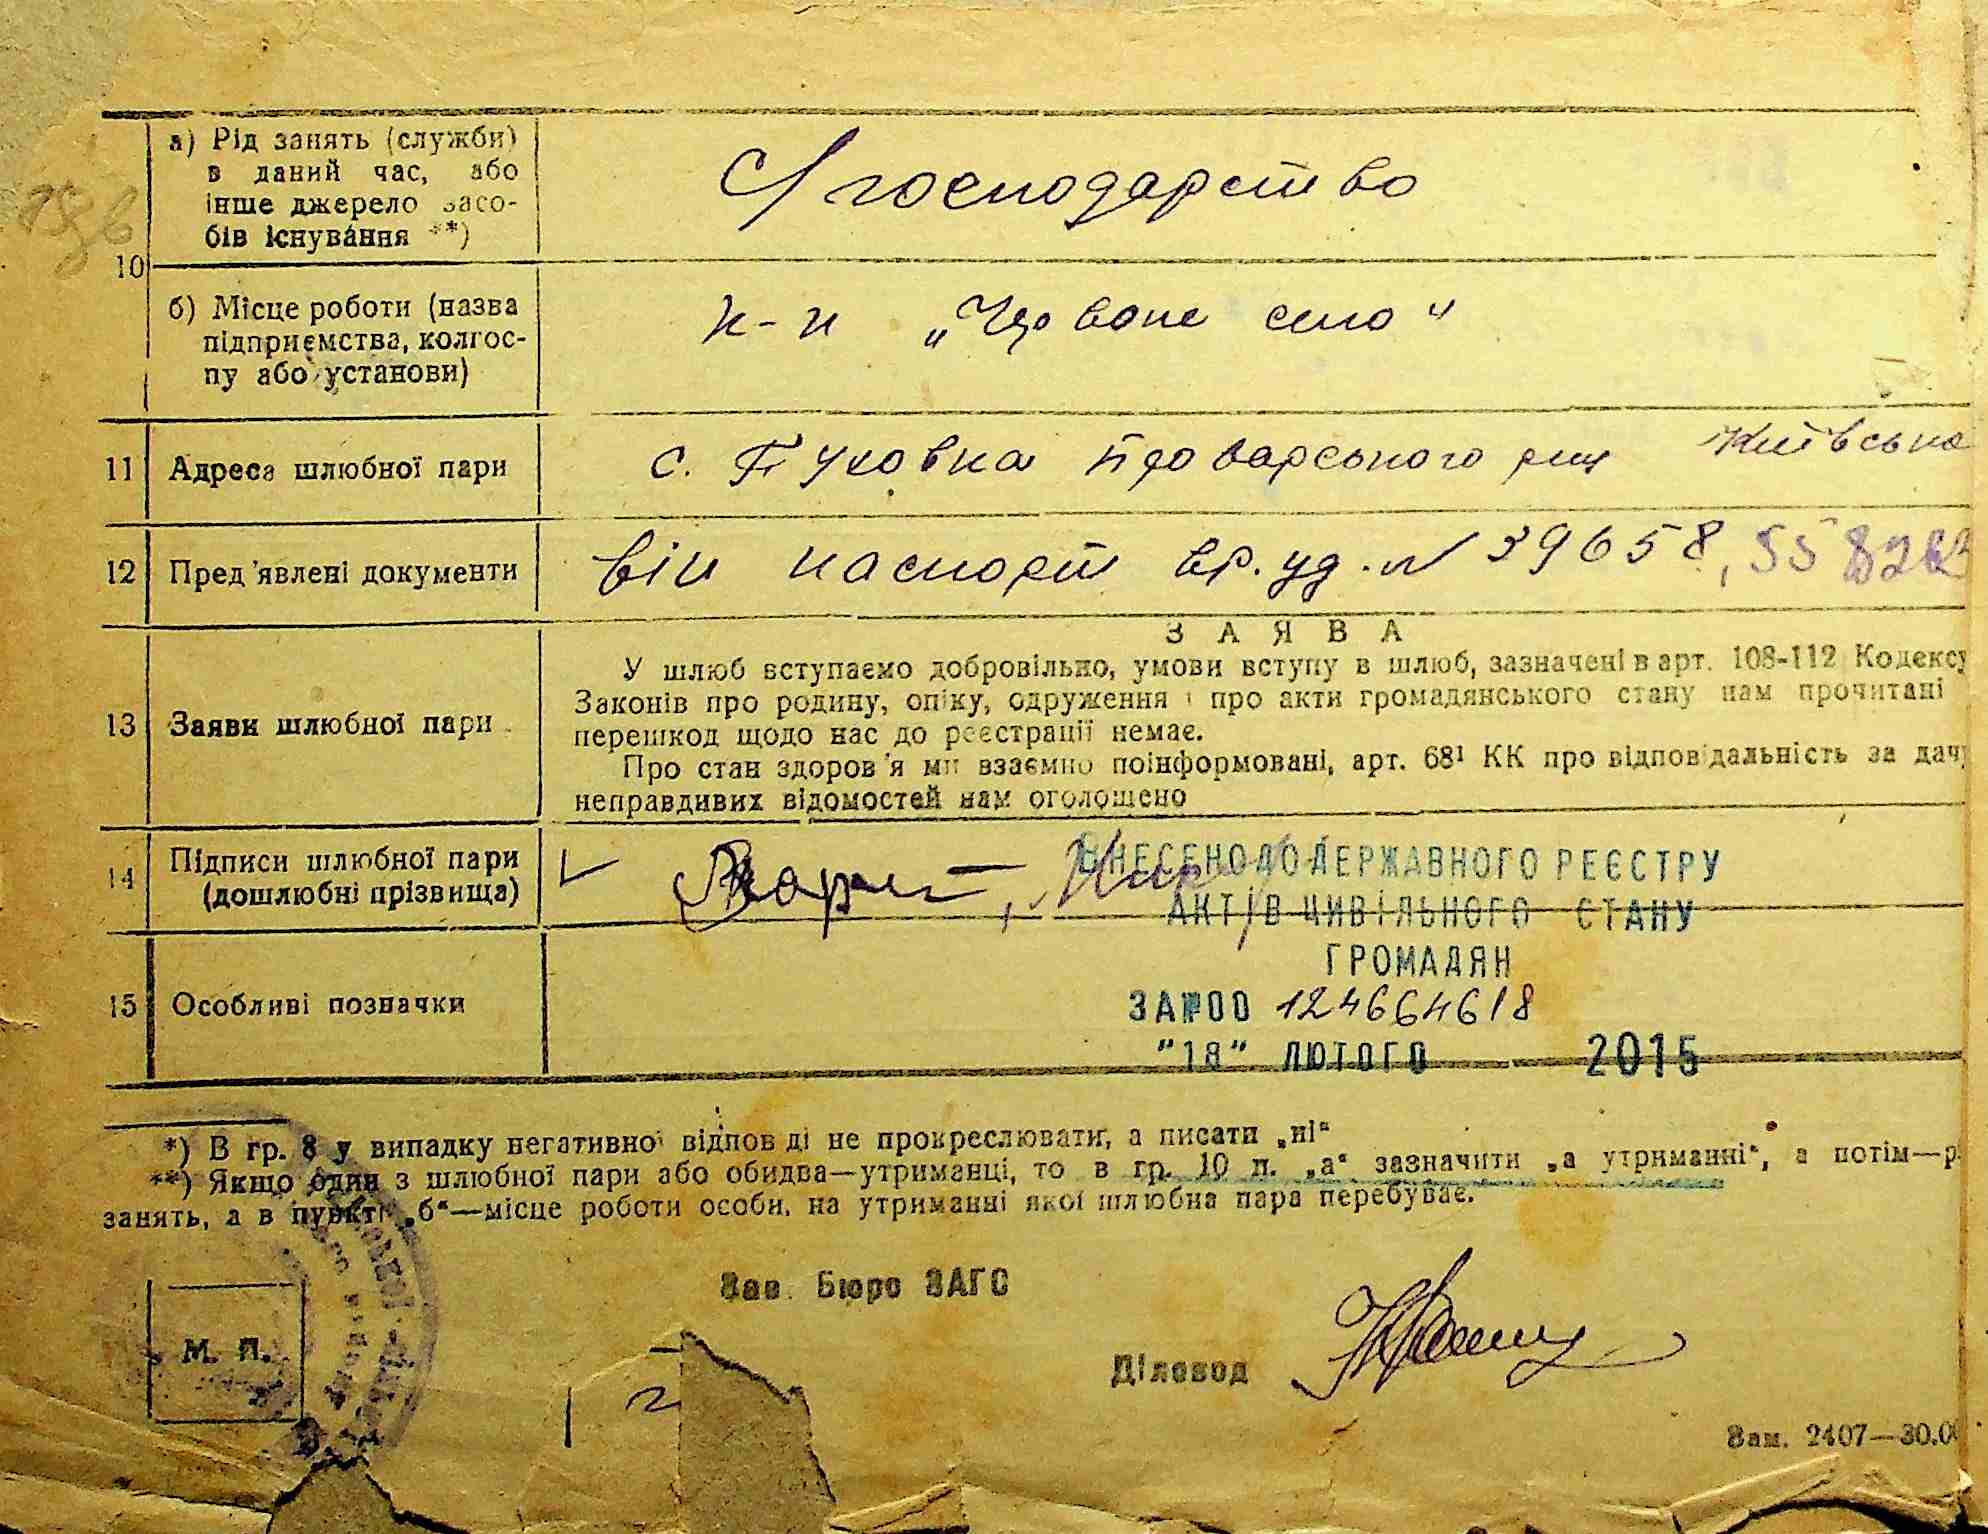 а) Рід занять (служби)
в даний час, або
інше джерело засо-
бів існування **)
С/господарство
10
б) Місце роботи (назва
підприємства, колгос-
пу або установи)
к-п „Червоне село"
11 Адреса шлюбної пари
с. Пуховка Броварського р-ну Київська
12 Пред'явлені документи
він паспорт вр. уд. № 39658,
ЗАЯВА
13 Заяви шлюбної пари
У шлюб вступаємо добровільно, умови вступу в шлюб, зазначені в арт. 108-112 Кодексу
Законів про родину, опіку, одруження і про акти громадянського стану нам прочитані
перешкод щодо нас до реєстрації немає.
Про стан здоров'я ми взаємно поінформовані, арт. 68¹ КК про відповідальність за дачу
неправдивих відомостей нам оголошено
14 Підписи шлюбної пари
(дошлюбні прізвища)
ВНЕСЕНО ДО ДЕРЖАВНОГО РЕЄСТРУ
АКТІВ ЦИВІЛЬНОГО СТАНУ
ГРОМАДЯН
15 Особливі позначки
ЗА №00 124664618
"18" ЛЮТОГО 2015
*) В гр. 8 у випадку негативної відповіді не прокреслювати, а писати „ні"
**) Якщо один з шлюбної пари або обидва—утриманці, то в гр. 10 п. „а" зазначити „а утриманні", а потім—р
занять, а в пункті „б"—місце роботи особи, на утриманні якої шлюбна пара перебуває.
Зав. Бюро ЗАГС
М. П.
Діловод
Зам. 2407—30.00